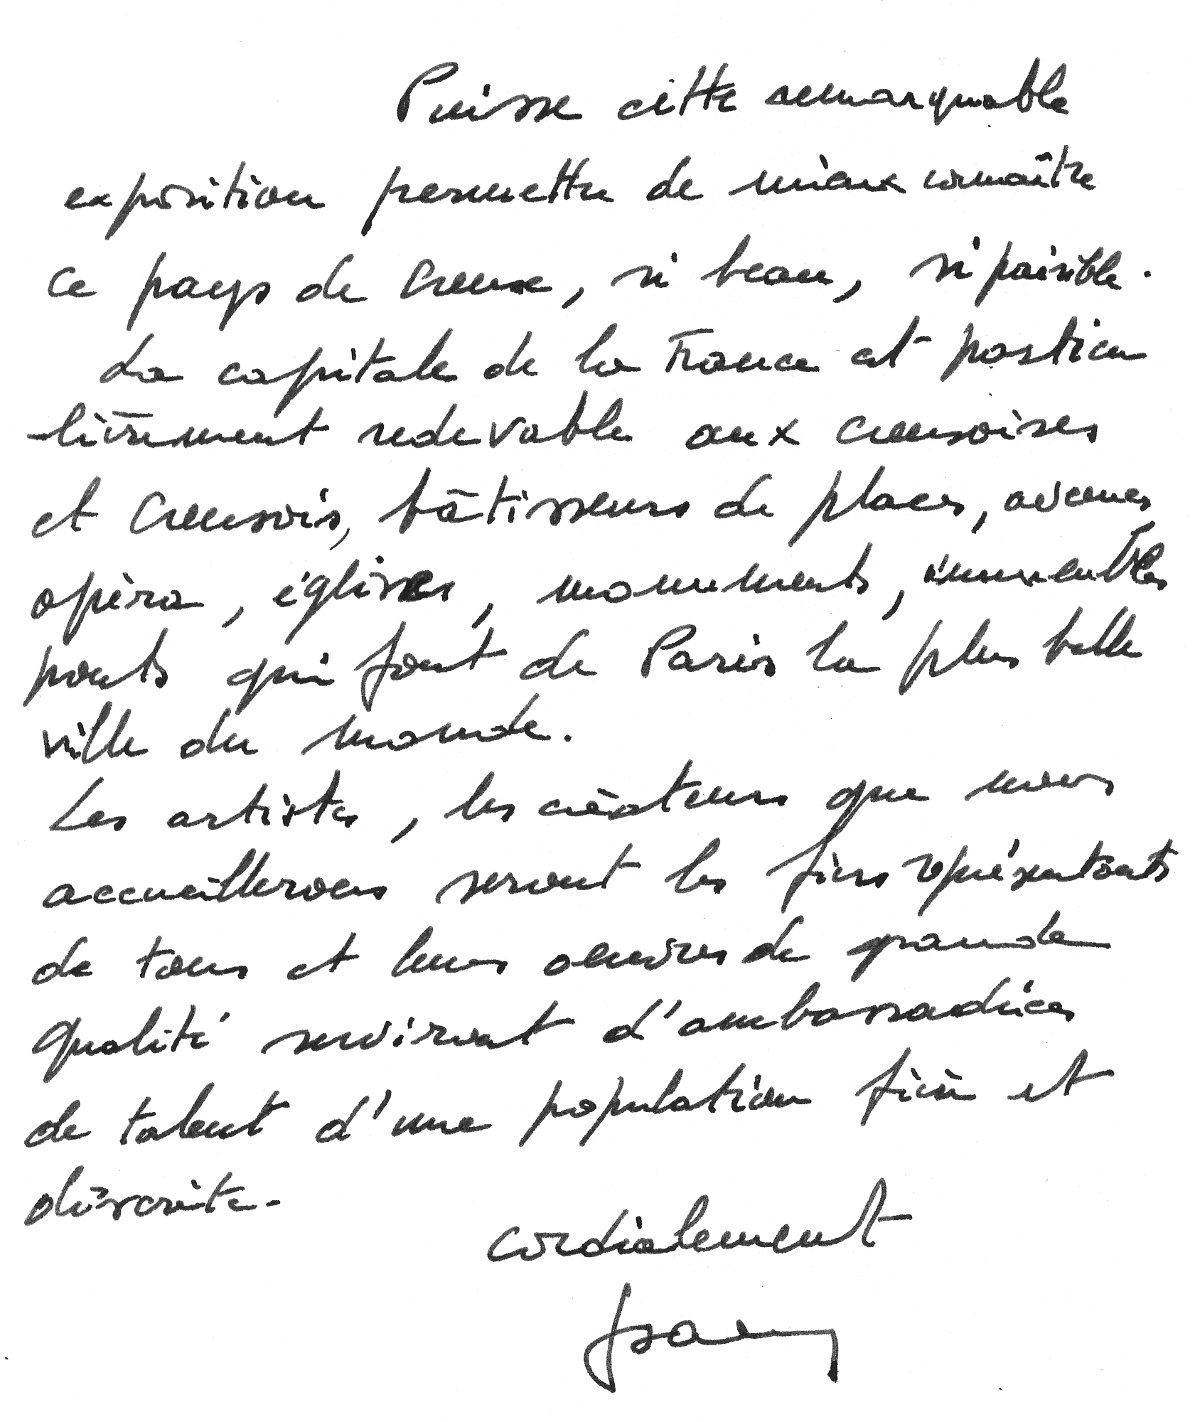 Puisse cette remarquable
exposition permettre de mieux connaître
ce pays de Creuse, si beau, si paisible.
La capitale de la France est particu
-lièrement redevable aux creusoises
et Creusois, bâtisseurs de places, avenues,
opéra, églises, monuments, immeubles
ponts qui font de Paris la plus belle
ville du monde.
Les artistes, les créateurs que nous
accueillerons seront les fiers représentants
de tous et leurs oeuvres de grande
qualité serviront d'ambassadrices
de talent d'une population fière et
discrète.
Cordialement